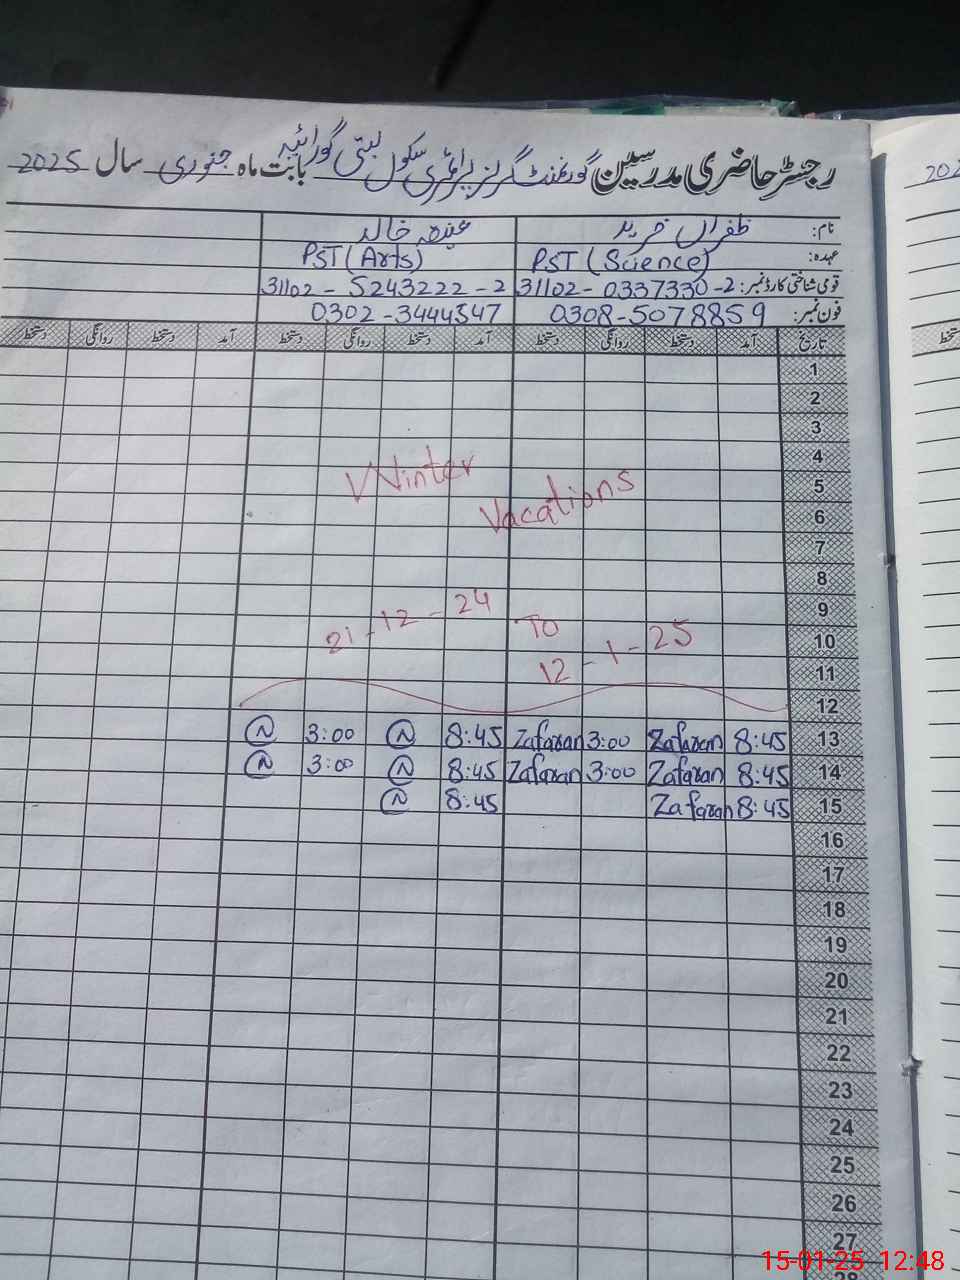 رجسٹر حاضری مدرسین گورنمنٹ گرلز پرائمری سکول بستی گورائیہ بابت ماہ جنوری سال 2025
نام: ظفراں فرید خالد
عہدہ: PST (Science) PST (Arts)
قومی شناختی کارڈ نمبر: 31102-0337330-2 31102-5243222-2
فون نمبر: 0308-5078859 0302-3444547
تاریخ آمد دستخط روانگی دستخط آمد دستخط روانگی دستخط آمد دستخط روانگی دستخط
1
2
3
4
Winter
5
Vacations
6
7
8
9
21-12-24 To
10
12-1-25
11
12
13 8:45 Zafaran 3:00 Zafaran 8:45 N 3:00 N
14 8:45 Zafaran 3:00 Zafaran 8:45 N 3:00 N
15 8:45 Zafaran 8:45 N
16
17
18
19
20
21
22
23
24
25
26
27
28
15-01-25 12:48